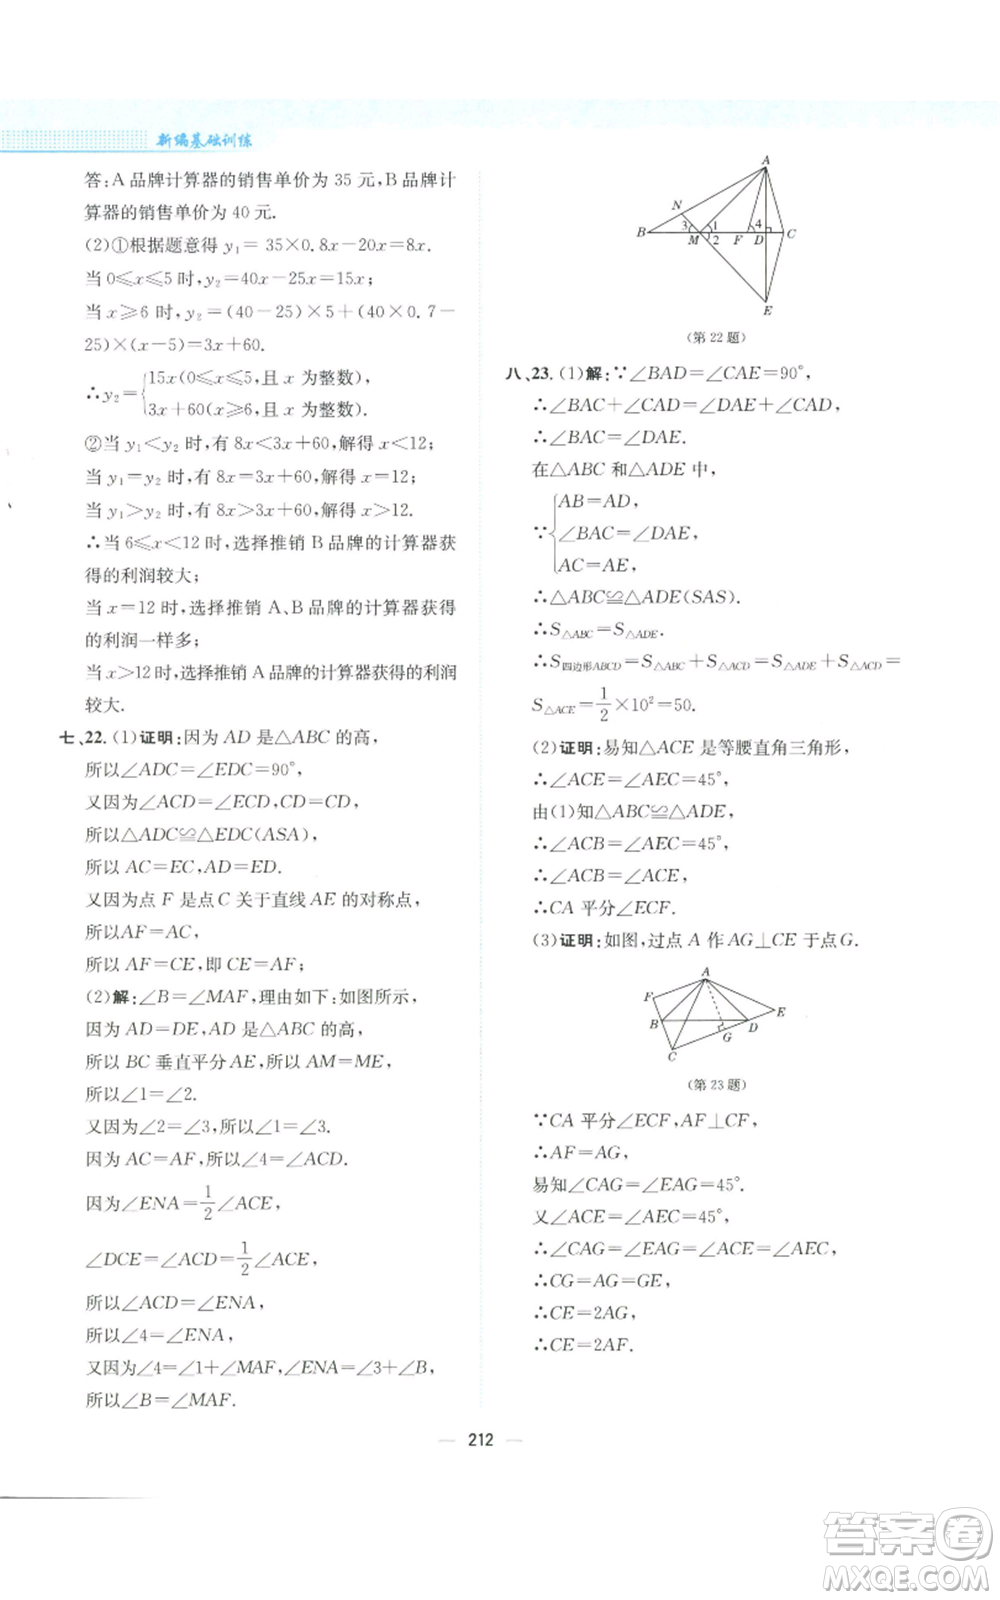 新编基础训练
答:A品牌计算器的销售单价为 35 元,B品牌计
算器的销售单价为 40 元.
(2)①根据题意得 y₁=35×0.8x-20x=8x.
当 0≤x≤5 时,y₂=40x-25x=15x;
当 x≥6 时,y₂=(40-25)×5+(40×0.7-
25)×(x-5)=3x+60.
∴y₂={15x(0≤x≤5,且 x 为整数),
3x+60(x≥6,且 x 为整数).
②当 y₁<y₂ 时,有 8x<3x+60,解得 x<12;
当 y₁=y₂ 时,有 8x=3x+60,解得 x=12;
当 y₁>y₂ 时,有 8x>3x+60,解得 x>12.
∴当 6≤x<12 时,选择推销 B 品牌的计算器获
得的利润较大;
当 x=12 时,选择推销 A、B 品牌的计算器获得
的利润一样多;
当 x>12 时,选择推销 A 品牌的计算器获得的利润
较大.
七、22.(1)证明:因为 AD 是△ABC 的高,
所以∠ADC=∠EDC=90°,
又因为∠ACD=∠ECD,CD=CD,
所以△ADC≌△EDC(ASA),
所以 AC=EC,AD=ED.
又因为点 F 是点 C 关于直线 AE 的对称点,
所以AF=AC,
所以 AF=CE,即 CE=AF.
(2)解:∠B=∠MAF,理由如下:如图所示,
因为 AD=DE,AD 是△ABC 的高,
所以 BC 垂直平分 AE,所以 AM=ME,
所以∠1=∠2.
又因为∠2=∠3,所以∠1=∠3.
因为 AC=AF,所以∠4=∠ACD.
因为∠ENA=1/2∠ACE,
∠DCE=∠ACD=1/2∠ACE,
所以∠ACD=∠ENA,
所以∠4=∠ENA,
又因为∠4=∠1+∠MAF,∠ENA=∠3+∠B,
所以∠B=∠MAF.
A
N
3 1 4
B M 2 F D C
E
(第 22 题)
八、23.(1)解:∵∠BAD=∠CAE=90°,
∴∠BAC+∠CAD=∠DAE+∠CAD,
∴∠BAC=∠DAE.
在△ABC 和△ADE 中,
AB=AD,
∵{∠BAC=∠DAE,
AC=AE,
∴△ABC≌△ADE(SAS).
∴S△ABC=S△ADE.
∴S四边形ABCD=S△ABC+S△ACD=S△ADE+S△ACD=
S△ACE=1/2×10²=50.
(2)证明:易知△ACE 是等腰直角三角形,
∴∠ACE=∠AEC=45°,
由(1)知△ABC≌△ADE,
∴∠ACB=∠AEC=45°,
∴∠ACB=∠ACE,
∴CA 平分∠ECF.
(3)证明:如图,过点 A 作 AG⊥CE 于点G.
A
F
E
B D
G
C
(第 23 题)
∵CA 平分∠ECF,AF⊥CF,
∴AF=AG,
易知∠CAG=∠EAG=45°.
又∠ACE=∠AEC=45°,
∴∠CAG=∠EAG=∠ACE=∠AEC,
∴CG=AG=GE,
∴CE=2AG,
∴CE=2AF.
212
答案卷
MXQE.COM